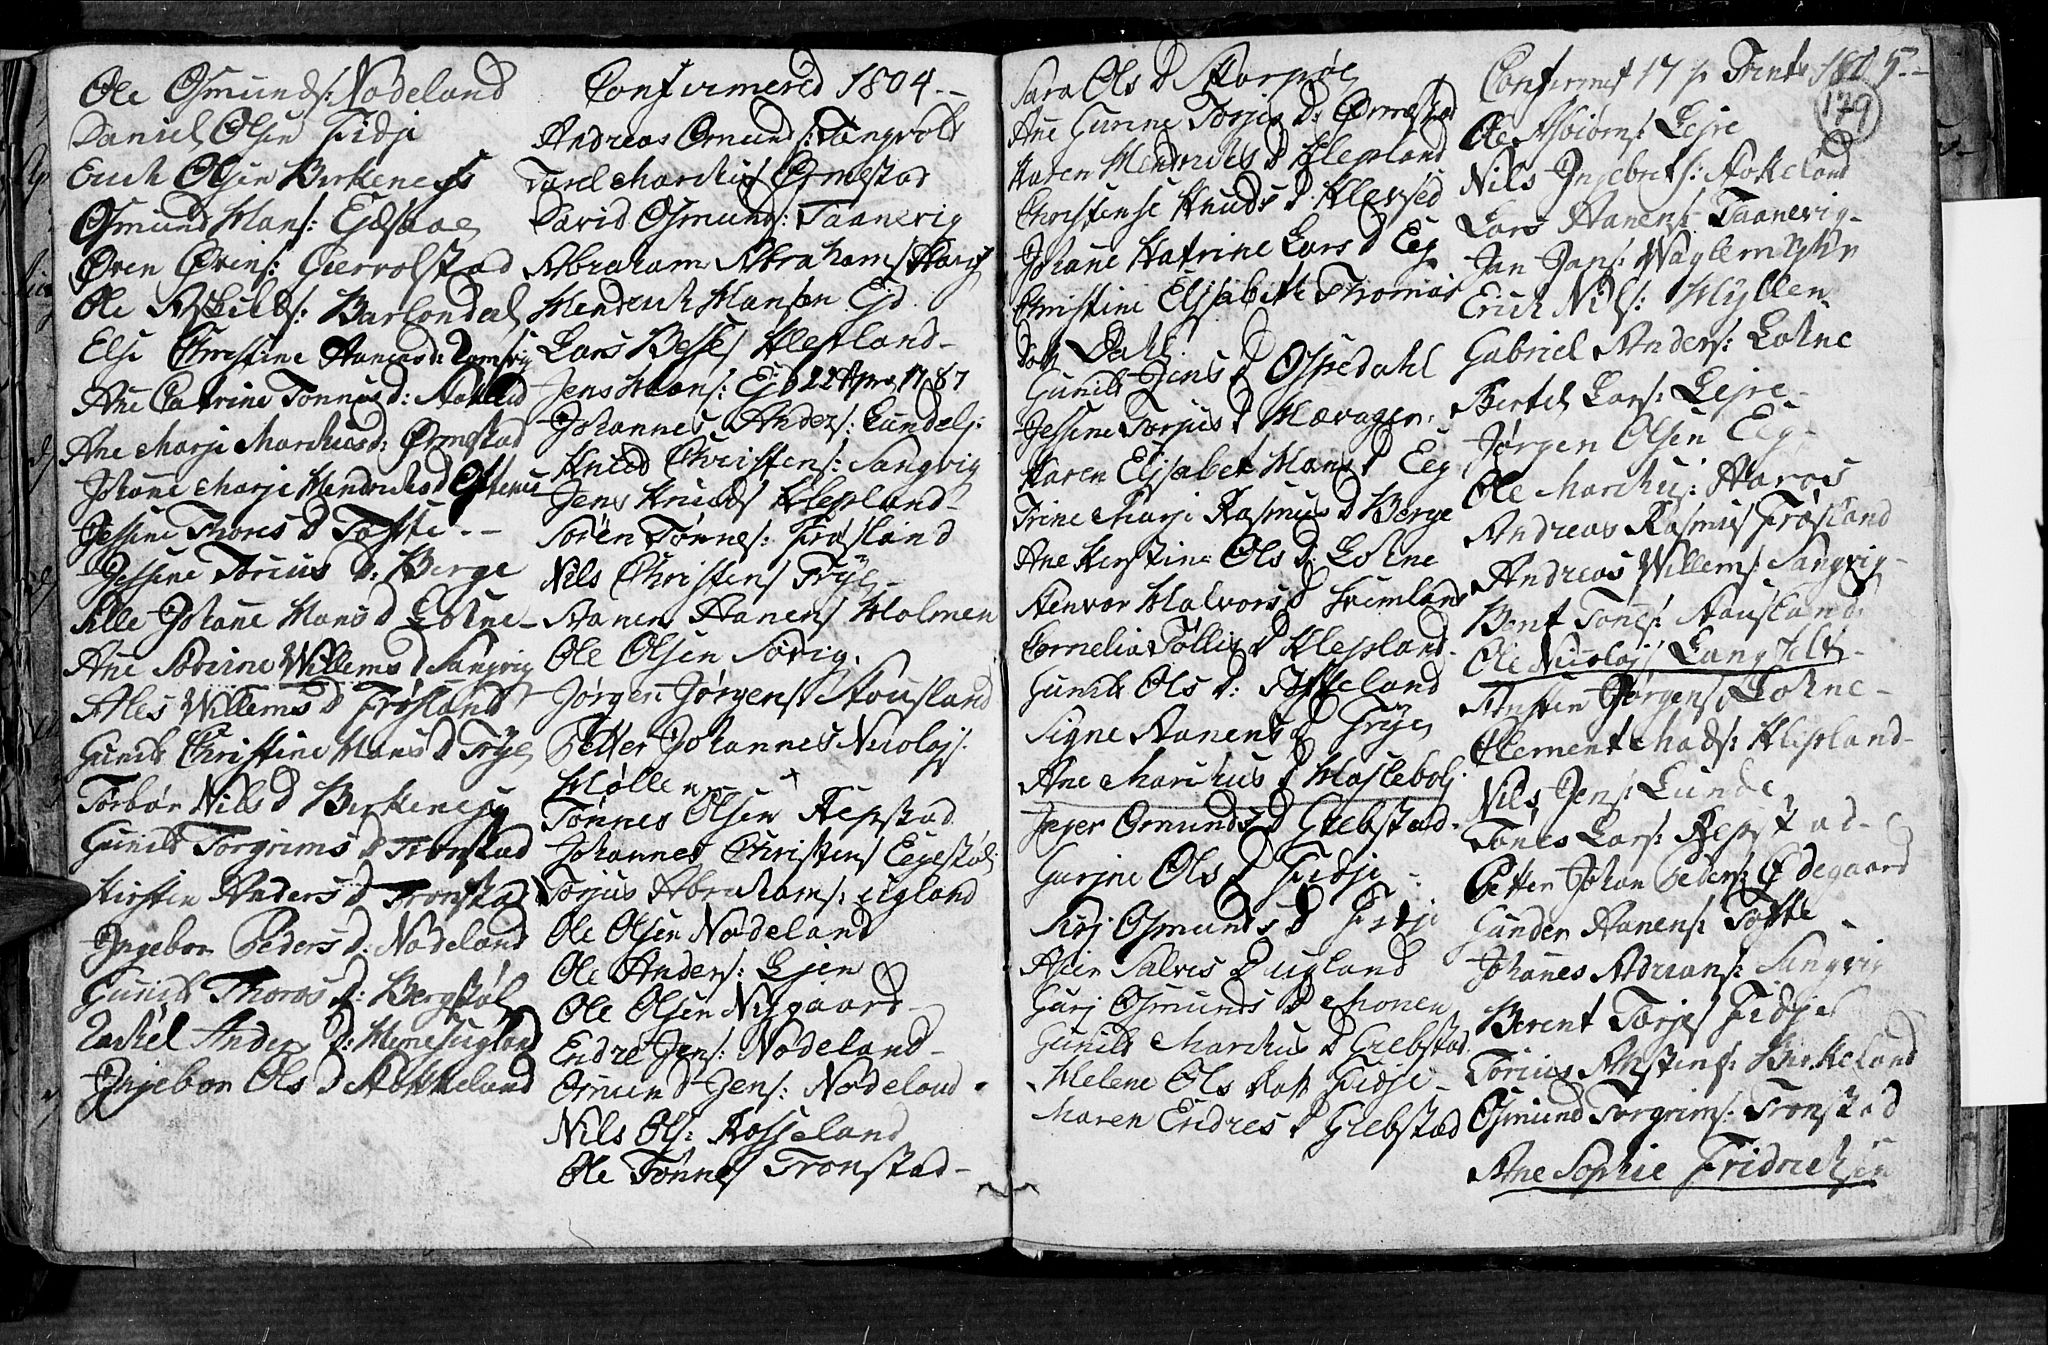 Ole Osmunds: Nødeland
Daniel Olsen Fidje
Erich Olsen Birkenes
Osmund Hans: Eidsaae
Øven Øvens: Giervolstad
Ole Aschilds: Barlondal
Else Christine Aanens d:
Ane Catrine Tønnes d:
Ane Marje Marchus d: Ormestad
Johanne Marje Hendrichs d
Jessine Thores d Tofte
Jessine Torius d: Berge
Sille Johane Hans d Lohne
Ane Severine Willems d Sangvig
Ales Willems d Frøsland
Gunild Christine Hans d Frye
Torbør Nils d Birkenes
Gunild Torgrims d Tronstad
Kirsten Anders d Tronstad
Ingebor Peders d: Nødeland
Gunild Thoras d: Bergstøl
Rachel Anders d:
Ingebor Ols d Stokkeland
Confirmered 1804
Andreas Omunds: Tangvold
Tarel Marchus Ormestad
David Osmunds: Taanevig
Abraham Abrahams
Hendrich Hansen Eg
Lars Besse Klepland
Jens Hans: Eg 22 Apr 1787
Johannes Anders: Lundelj:
Knud Christens: Sangvig
Jens Knuds Klepland
Søren Tønnes: Frøsland
Nils Christens Frye
Aanen Aanens Holmen
Ole Olsen Søvig
Jørgen Jørgens: Aousland
Petter Johannes Nicolaj
Møller
Tønnes Olsen Repstad
Johannes Christens Eegestøl
Torjus Abrahams: Ugland
Ole Olsen Nødeland
Ole Anders: Ljen
Ole Olsen Nygaard
Endre Jens: Nødeland
Omund Jens: Nødeland
Nils Ols: Rosseland
Ole Tønnes Tronstad
Sara Ols d Skarpøe
Ane Gurine Torjes d: Ormestad
Karen Hendrichs d Klepland
Christense Knuds d Klevsed
Johane Katrine Lars d Eeg
Christine Elisabeth Thomas
Dott Dahl
Gunild Jens d Ospedahl
Jessine Torjus d Hævager:
Karen Elisabet Hans d Eeg
Trine Marje Rasmus d Berge
Ane Kerstine Ols d Lohne
Renvor Halvors d
Cornelia Tøllis d Klepland
Gunild Ols d:
Signe Aanens d Frye
Ane Marchus d Haslebolj
Inger Omunds d Grebstad
Gurine Ols d Fidje
Sirj Osmunds d Fidje
Asier Salves d Ugland
Gurj Osmunds d Monen
Gunild Marchus d Grebstad
Helene Ols Datt Fidje
Maren Endres d Grebstad
Confirmert 17 p Trinit 1805
179
Ole Asbiørns: Lejre
Nils Ingebrets: Stokkeland
Lars Aanens: Taanevig
Jan Jans:
Erich Nils: Hyllen
Gabriel Anders: Lohne
Bertel Lars: Lejre
Jørgen Olsen Eeg
Ole Marchus: Aaros
Andreas Rasmus Frøsland
Andreas Willems: Sangvig
Bent Tønes: Aousland
Ole Nicolaj Langfelt
Ansten Jørgens Lohne
Clement Mads: Klepland
Nils Jens: Lunde
Tønes Lars: Repstad
Petter Johan Peders: Ødegaard
Gunder Aanens: Tofte
Johanes Adrians: Sangvig
Berent Torjes Fidje
Torius Anstens: Birkeland
Osmund Torgrims: Tronstad
Ane Sophie Fridrichsen